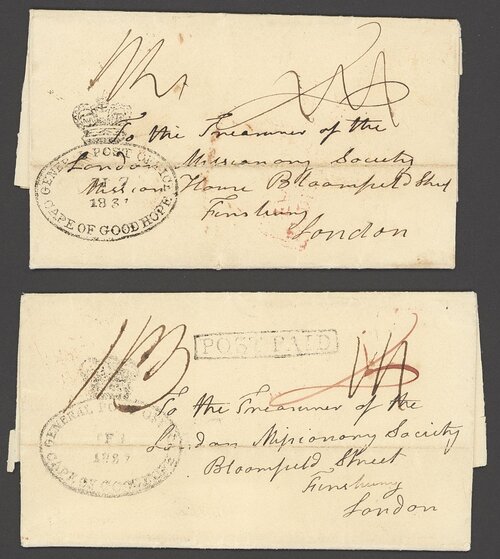 To the Treasurer of the
London Missionary Society
Mission House Bloomfield Street
Finsbury
London
GENERAL POST OFFICE
183
CAPE OF GOOD HOPE
POST PAID
To the Treasurer of the
London Missionary Society
Bloomfield Street
Finsbury
London
GENERAL POST OFFICE
CAPE OF GOOD HOPE